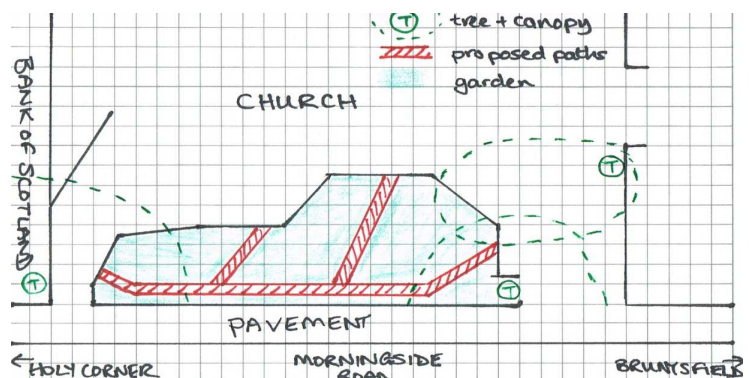 T tree + canopy
proposed paths
garden
CHURCH
BANK OF SCOTLAND
T
T
T
PAVEMENT
← HOLY CORNER
MORNINGSIDE
ROAD
BRUNTSFIELD →